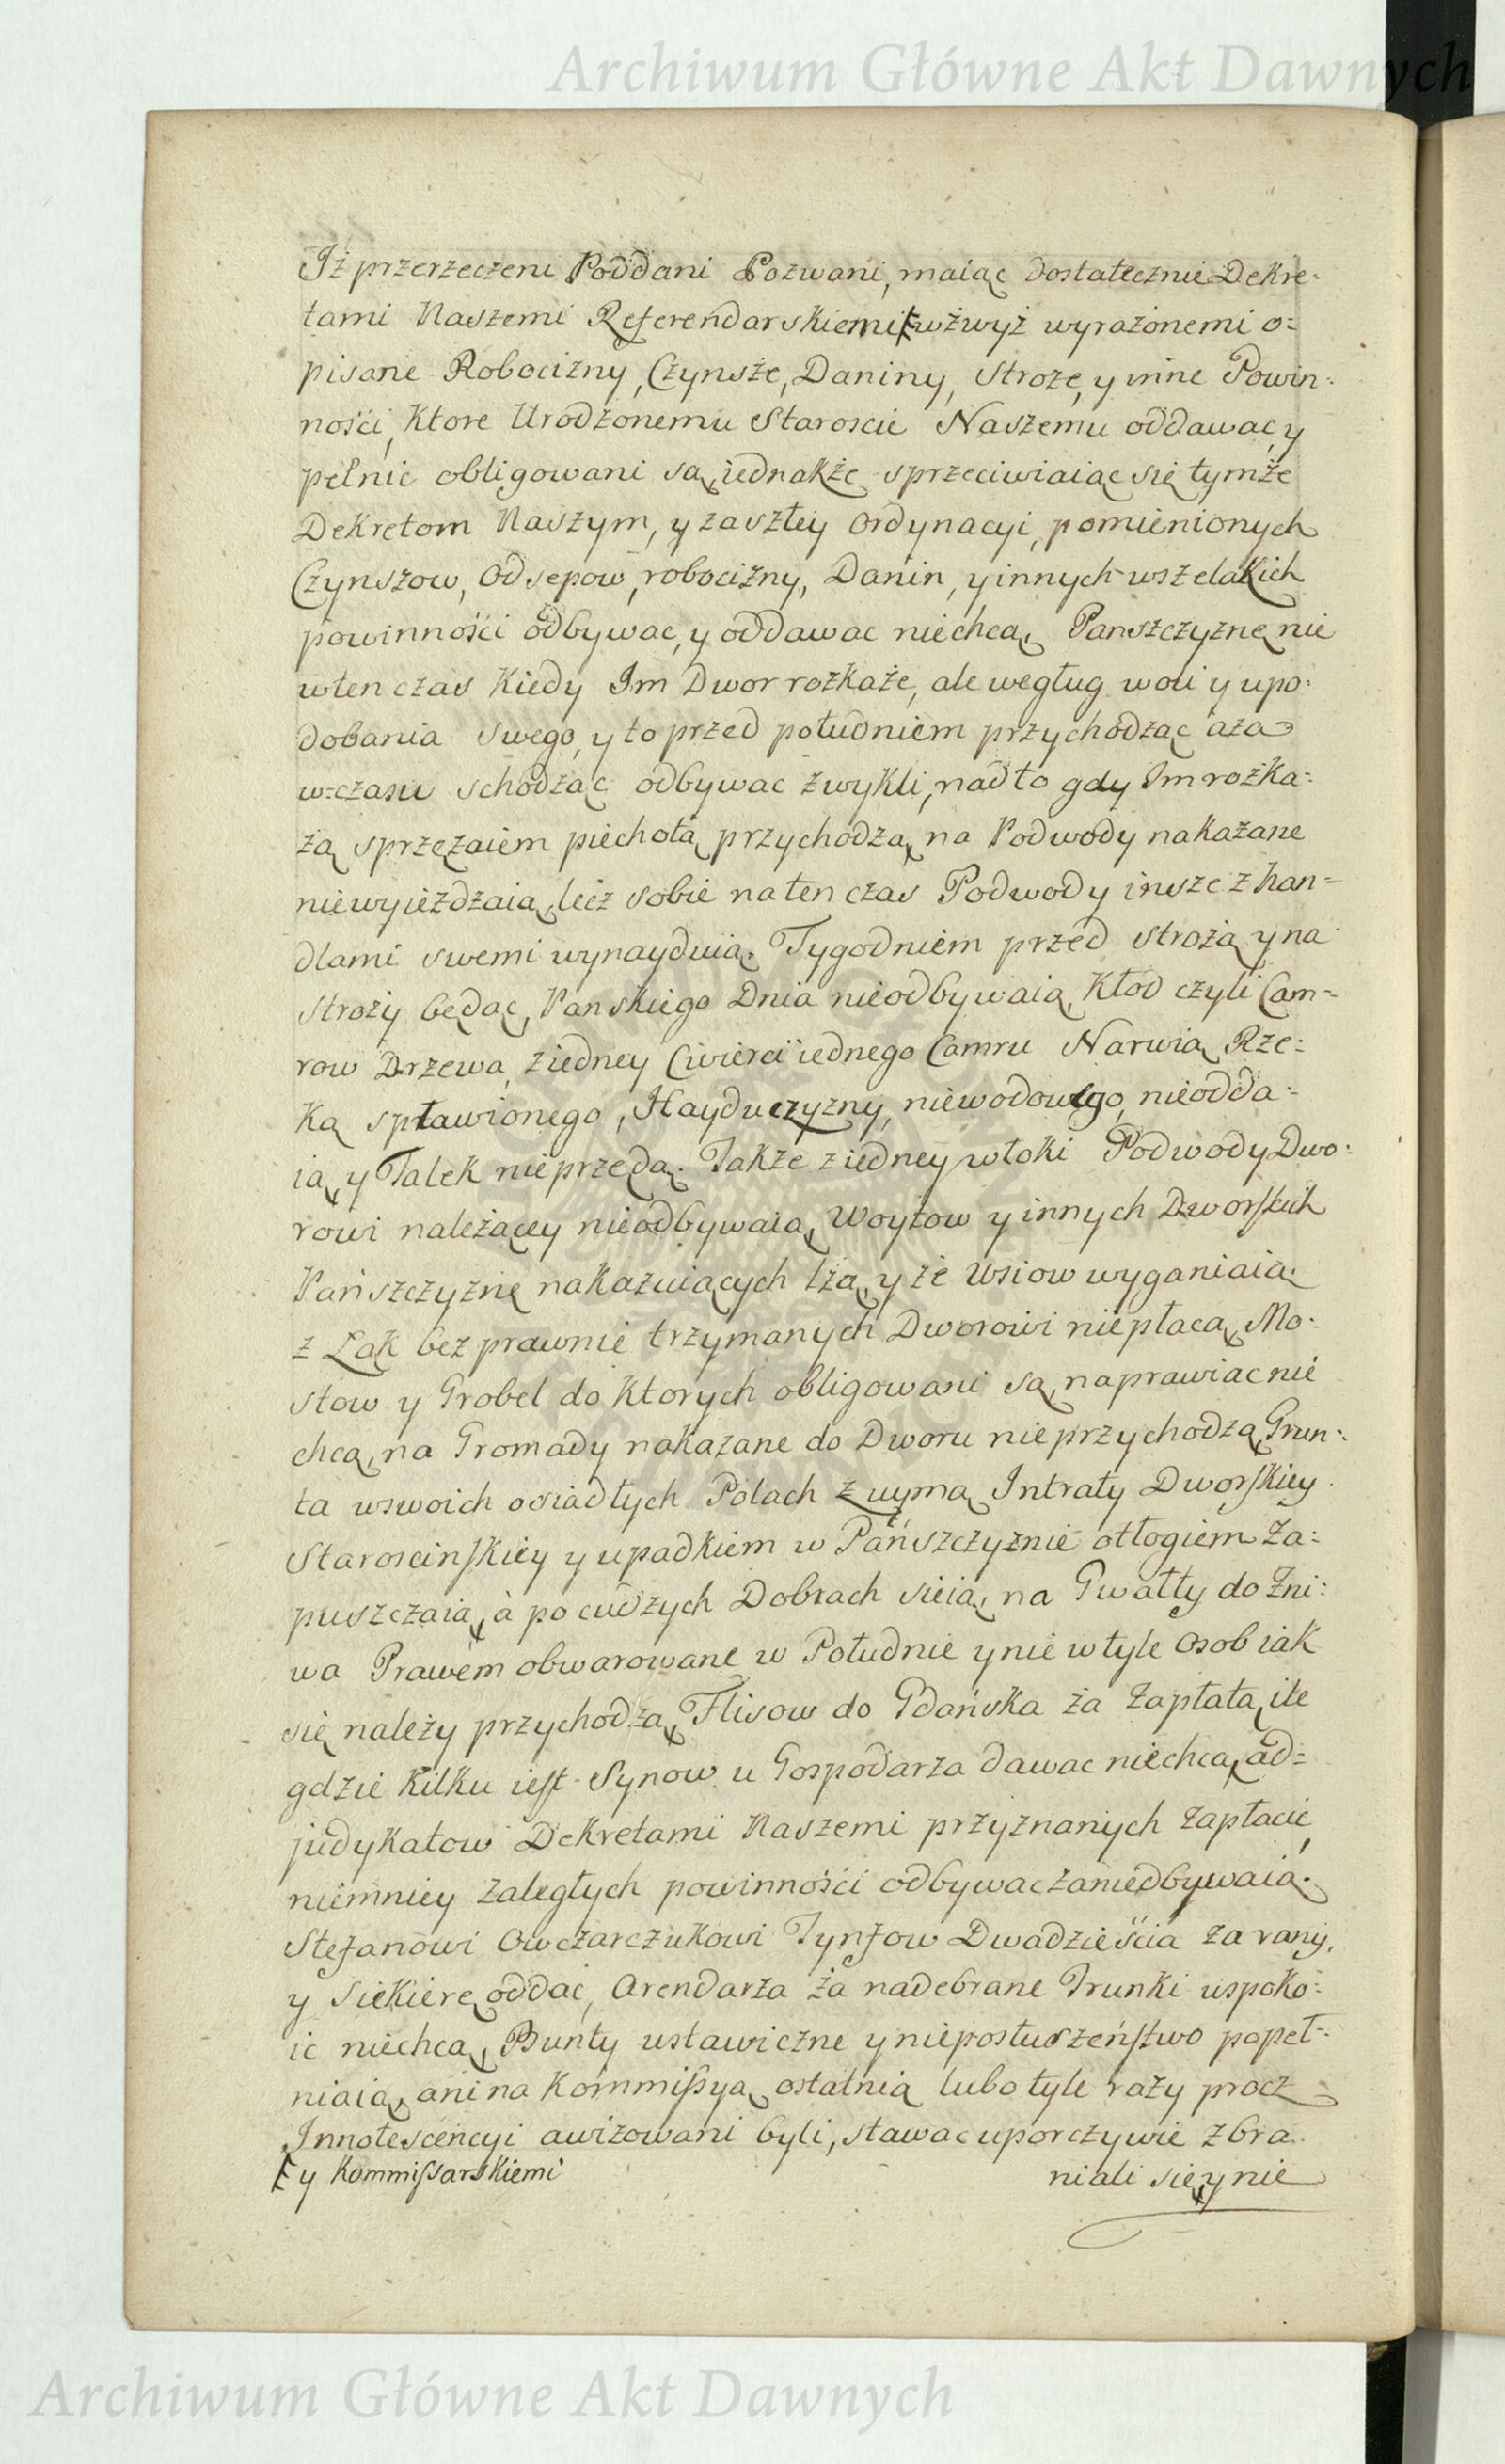 Archiwum Główne Akt Dawnych
Iż przerzeczeni Poddani Pozwani, maiąc dostatecznie Dekre-
tami Naszemi Referendarskiemi ⱡ wżwyż wyrażonemi o-
pisane Robocizny, Czynsze, Daniny, Stroże, y inne Powin-
nośći, Ktore Urodzonemu Staroscie Naszemu oddawac, y
pełnic obligowani są, iednakże sprzeciwiaiąc się tymże
Dekretom Naszym, y zaszłey Ordynacyi, pomienionych
Czynszow, Odsepow, robocizny, Danin, y innych wszelakich
powinnośći odbywac, y oddawac niechcą, Panszczyznę nie
wten czas Kiedy Im Dwor rozkaże, ale wegług woli y upo-
dobania swego, y to przed południem przychodząc aza
w=czasu schodząc odbywac zwykli, nadto gdy Im rozka-
żą sprzężaiem piechotą przychodzą, na Podwody nakazane
niewyieżdzaią, lecz sobie na ten czas Podwody insze z han-
dlami swemi wynayduią. Tygodniem przed strożą y na
stroży będąc, Panskiego Dnia nieodbywaią, Kłod czyli Cam-
row Drzewa, z iedney Cwierci iednego Camru Narwią Rze-
Ką spławionego, Hayduczyzny, niewodowego, nieodda-
ią, y Talek nie przędą. Także z iedney włoki Podwody Dwo-
rowi należącey nieodbywaią, Woytow y innych Dworskich
Pańszczyznę nakazuiących lżą, y ze Wsiow wyganiaią.
z Łąk bez prawnie trzymanych Dworowi niepłacą, Mo-
stow y Grobel do Ktorych obligowani są, naprawiac nie
chcą, na Gromady nakazane do Dworu nie przychodzą, Grun-
ta wswoich osiadłych Polach z uymą Intraty Dworskiey
Staroscinskiey y upadkiem w Pańszczyznie otłogiem Za-
puszczaią, à po cudzych Dobrach sieią, na Gwałty do Żni-
wa Prawem obwarowane w Południe y nie w tyle Osob iak
się należy przychodzą, Flisow do Gdańska za Zapłatą, ile
gdzie Kilku iest Synow u Gospodarza dawac niechcą, ad-
judykatow Dekretami Naszemi przyznanych Zapłacić,
niemniey Zaległych powinnośći odbywac zaniedbywaią.
Stefanowi Owczarczukowi Tynfow Dwadzieścia za rany,
y siekierę oddać, Arendarza za nadebrane Trunki uspoko-
ic niechcą, Bunty ustawiczne y nieposłuszeństwo popeł-
niaią, ani na Kommissyą ostatnią lubo tyle razy procz
Innotescencyi awizowani byli, stawac uporczywie zbra-
ⱡ y Kommissarskiemi
niali się, y nie
Archiwum Główne Akt Dawnych